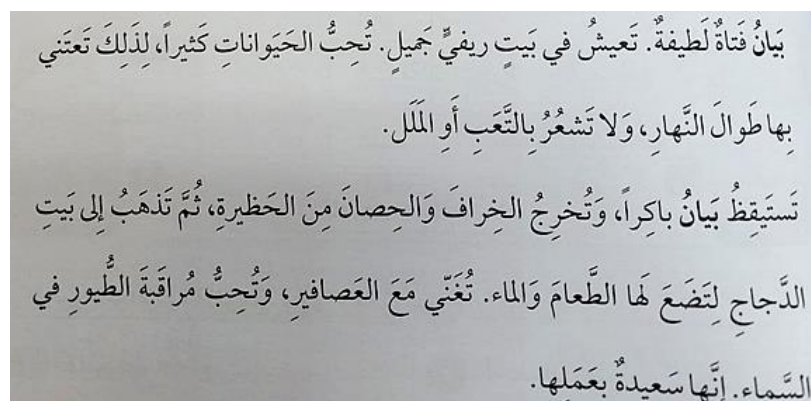 بَيانُ فَتاةٌ لَطيفةٌ. تَعيشُ في بَيتٍ ريفيٍّ جَميلٍ. تُحِبُّ الحَيَواناتِ كَثيراً، لِذَلِكَ تَعتَني
بِها طَوالَ النَّهارِ، وَلا تَشعُرُ بِالتَّعَبِ أَوِ المَلَل.
تَستَيقِظُ بَيانُ باكِراً، وَتُخرِجُ الخِرافَ وَالحِصانَ مِنَ الحَظيرةِ، ثُمَّ تَذهَبُ إِلى بَيتِ
الدَّجاجِ لِتَضَعَ لَها الطَّعامَ وَالماء. تُغَنّي مَعَ العَصافيرِ، وَتُحِبُّ مُراقَبَةَ الطُّيورِ في
السَّماء. إِنَّها سَعيدةٌ بِعَمَلِها.